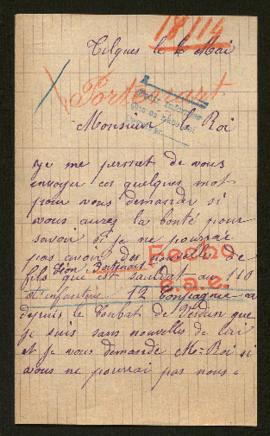 18114
Tilques le 6 Mai
Portenart
Monsieur le Roi
je me permet de vous
envoyer ces quelques mot
pour vous demander si
vous aurez la bonté pour
savoir si je ne pourrai
pas avoir des nouvelles de
fils Léon Portenart
que est soldat au 110
Fiche
et infanterie 12 Compagnie
s.a.e.
depuis le combat de Verdun que
je suis sans nouvelles de lui
et je vous demande Mr Roi si
vous ne pourrai pas nous